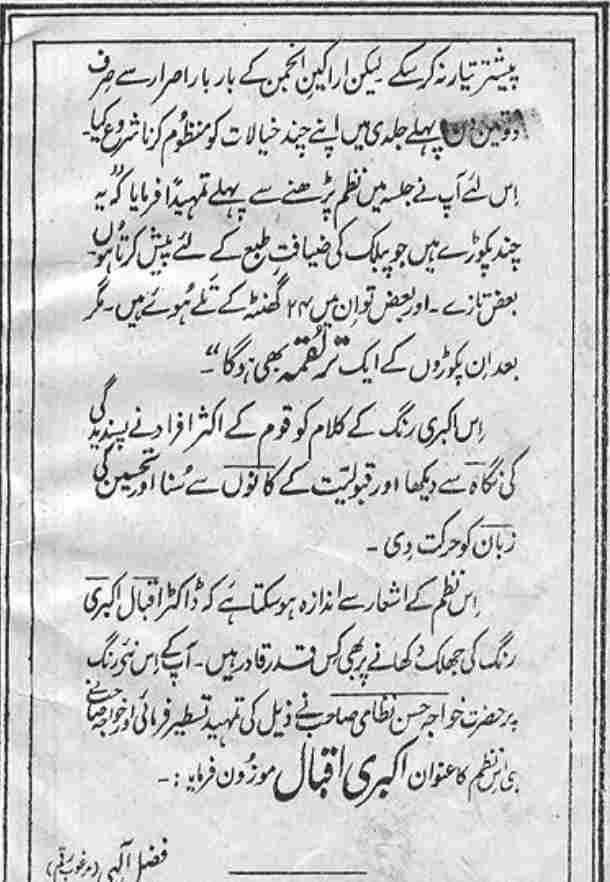 پیشتر تیار نہ کر سکے لیکن اراکین انجمن کے بار بار اصرار سے صرف
دو تین دن پہلے جلدی میں اپنے چند خیالات کو منظوم کرنا شروع کیا۔
اِس لئے آپ نے جلسہ میں نظم پڑھنے سے پہلے تمہیداً فرمایا کہ "یہ
چند پکوڑے ہیں جو پبلک کی ضیافتِ طبع کے لئے پیش کرتا ہوں۔
بعض تازے۔ اور بعض تو اِن میں ۲۴ گھنٹہ کے تلے ہُوئے ہیں۔ مگر
بعد اِن پکوڑوں کے ایک تر لُقمہ بھی ہوگا"۔
اِس اکبری رنگ کے کلام کو قوم کے اکثر افراد نے پسندیدگی
کی نگاہ سے دیکھا اور قبولیّت کے کانوں سے سُنا اور تحسین کی
زبان کو حرکت دی۔
اِس نظم کے اشعار سے اندازہ ہو سکتا ہے کہ ڈاکٹر اقبال اکبری
رنگ کی جھلک دکھانے پر بھی کِس قدر قادر ہیں۔ آپ کے اِس نئی رنگ
پر حضرت خواجہ حسن نظامی صاحب نے ذیل کی تمہید تسطیر فرمائی اور خواجہ صاحب نے
ہی اس نظم کا عنوان اکبری اقبال موزُون فرمایا :۔
فضل الٰہی (مرغوب رقم)